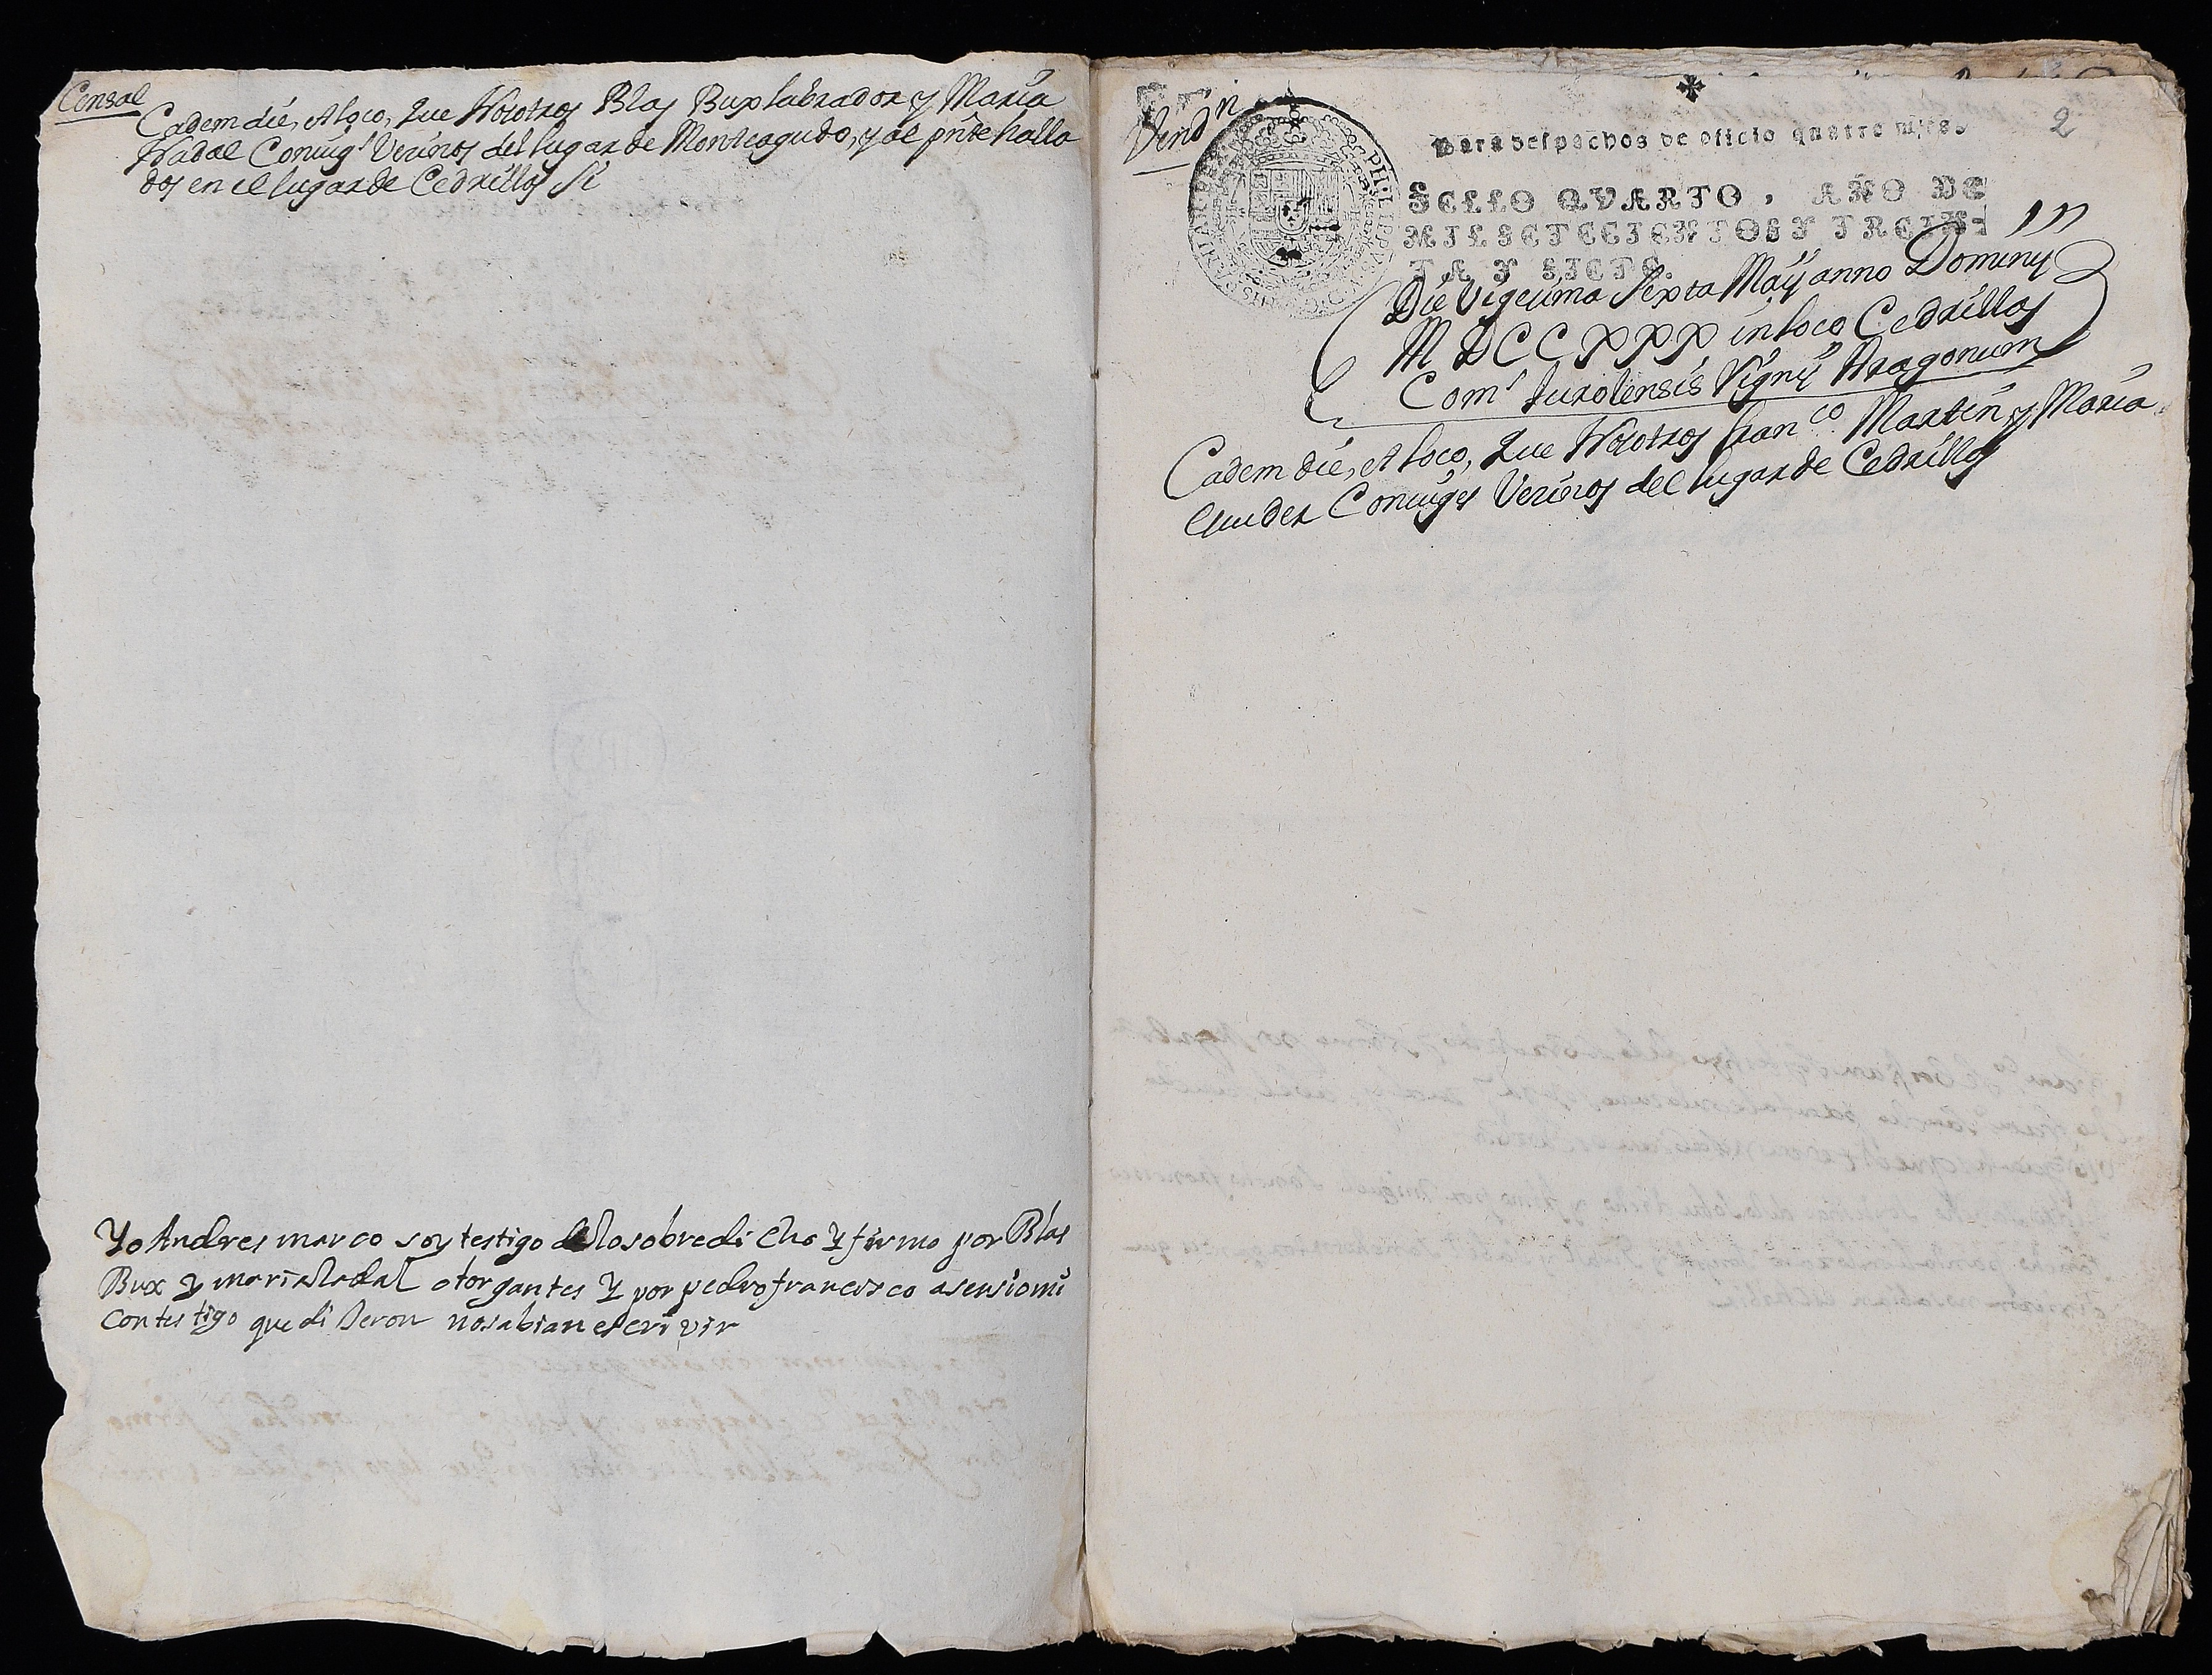 Censal
Eadem die, et loco, Que Nosotros Blas Bux labrador y Maria
Nadal Coniug.s Vecinos del lugar de Monteagudo, y al pnte halla
dos en el lugar de Cedrillos Si
Yo Andres marco soy testigo de lo sobredi cho Y firmo por Blas
Bux y maria Nadal otorgantes Y por pedro francisco asensio mi
contestigo que di Jeron no sabian escri vir
Vend.n
2
Para despachos de oficio quatro mrs.
SELLO QVARTO, AÑO DE
MIL SETECIENTOS Y TREIN-
TA Y SIETE.
Die Vigecima Sexta Maij anno Dominij
M D C C X X X in loco Cedrillos
Com.s turolensis Rignij Aragonum
Eadem die, et loco, Que Nosotros fran.co Martin y Maria
Coniuges Vecinos del lugar de Cedrillos